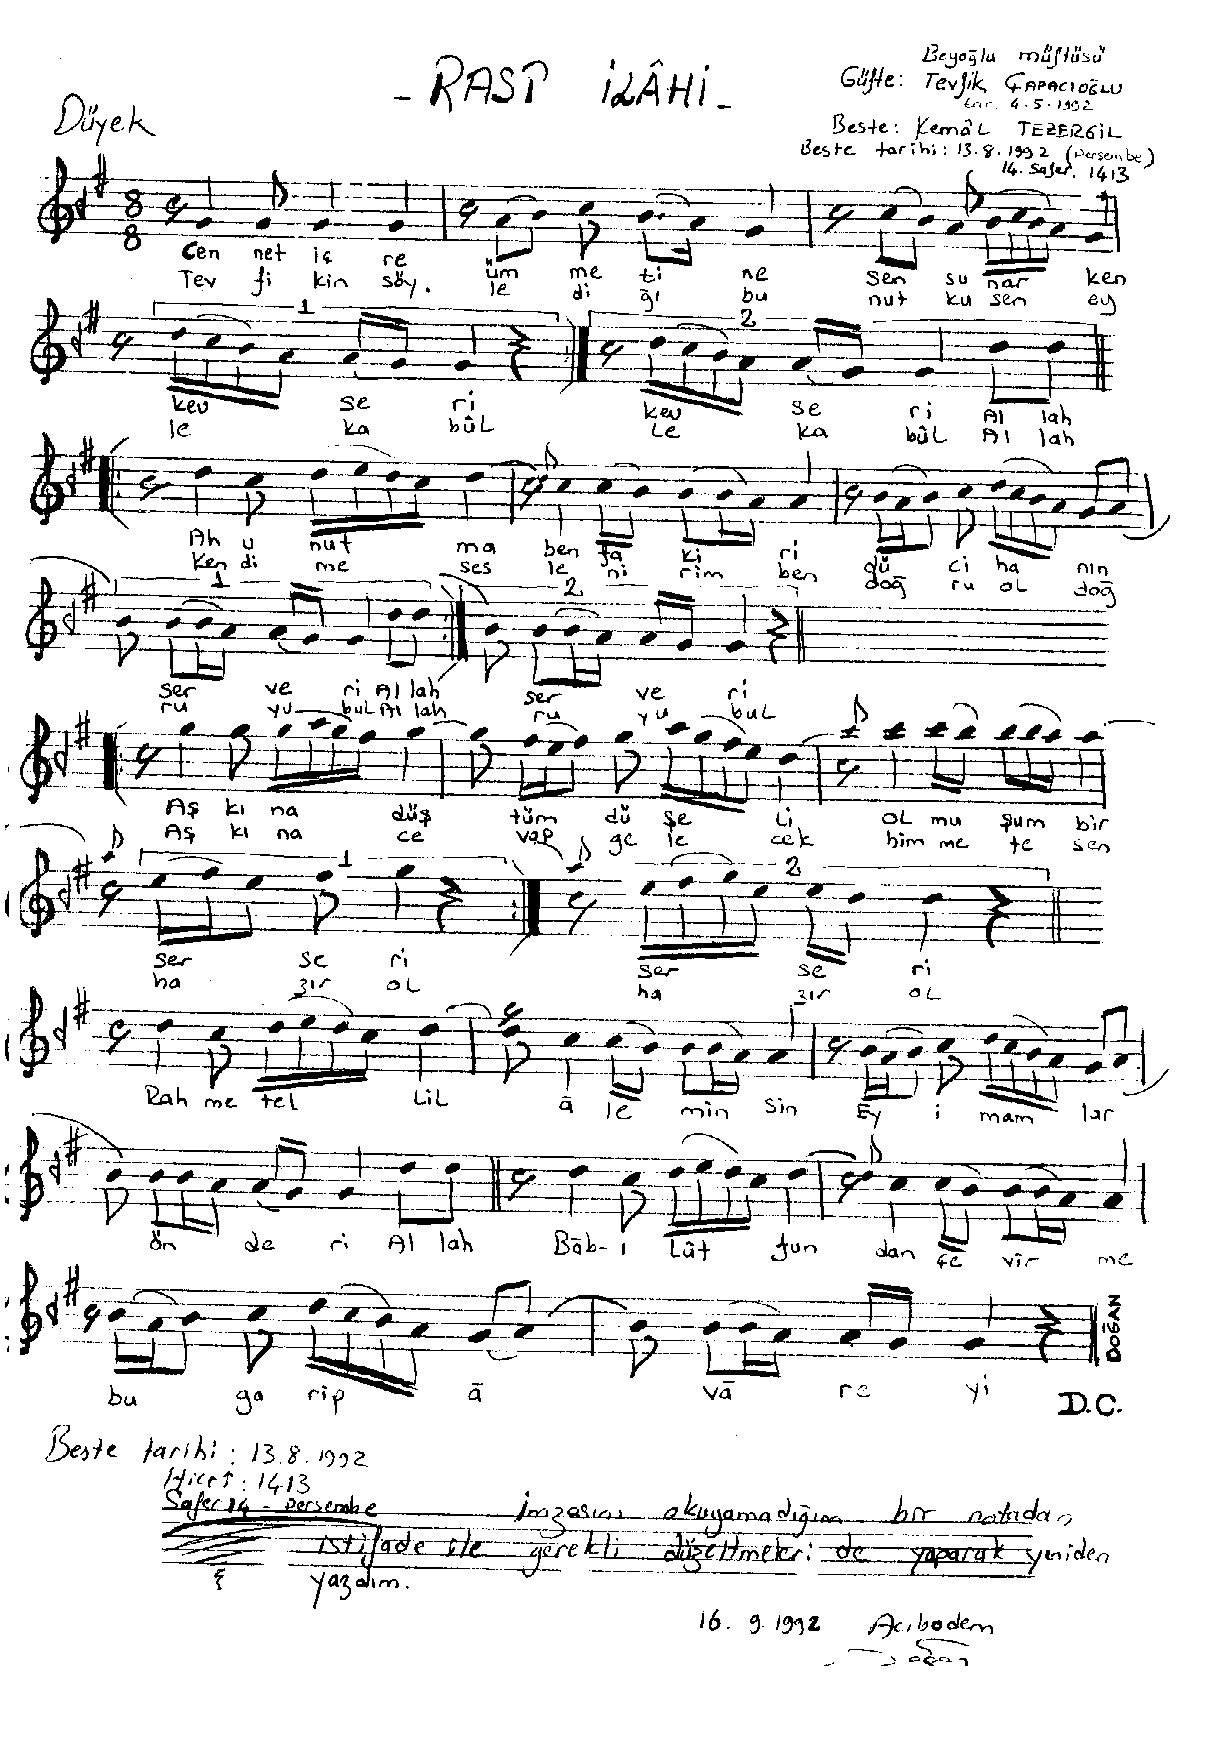 Beyoğlu müftüsü
- RAST İLÂHİ -
Güfte: Tevfik ÇAPACIOĞLU
tar. 4.5.1992
Düyek
Beste: Kemâl TEZERGİL
Beste tarihi: 13.8.1992 (Perşembe)
14. Safer. 1413
8
8
Cen net iç re üm me ti ne sen su nar ken
Tev fi kin söy. le di ği bu nut ku sen ey
1 2
kev se ri kev se ri Al lah
le ka bûl le ka bûl Al lah
Ah u nut ma ben fa ki ri dü ci ha nın
ken di me ses le ni rim ben doğ ru ol doğ
1 2
ser ve ri Al lah ser ve ri
ru yu bul Al lah ru yu bul
Aş kı na düş tüm dü şe li OL mu şum bir
Aş kı na ce vap ge le cek him me te sen
1 2
ser se ri ser se ri
ha zır OL ha zır OL
Rah me tel LiL â le min sin Ey i mam lar
ön de ri Al lah Bâb-ı Lût fun dan çe vir me
bu ga rip â vâ re yi
DOĞAN
D.C.
Beste tarihi: 13.8.1992
Hicrî: 1413
Safer 14 - Perşembe
İmzasını okuyamadığım bir notadan
istifade ile gerekli düzeltmeleri de yaparak yeniden
yazdım.
16. 9. 1992 Acıbadem
Doğan